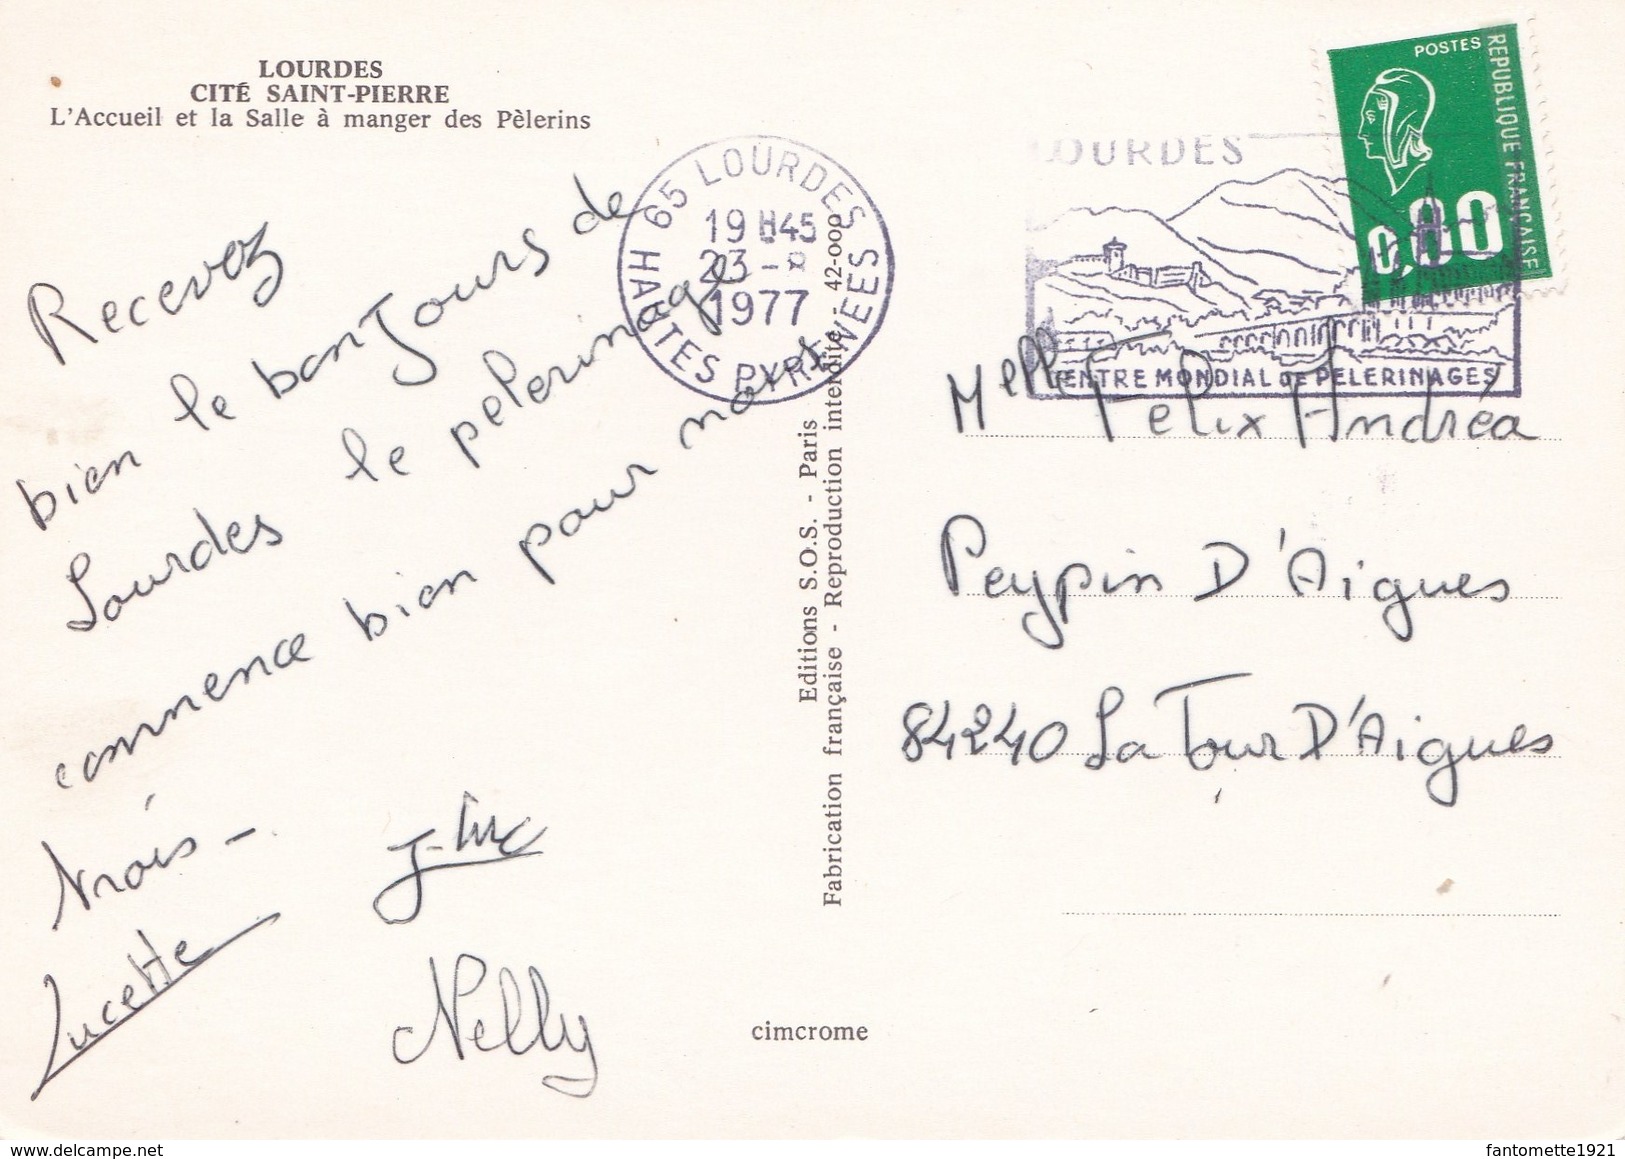 LOURDES
CITÉ SAINT-PIERRE
L'Accueil et la Salle à manger des Pèlerins
Recevez
bien le bon Jours de
Lourdes le pelerinage
commence bien pour nous
trois -
J-luc
Lucette
Nelly
cimcrome
Editions S.O.S. - Paris
Fabrication française - Reproduction interdite - 42-000
65 LOURDES
19 H45
23 - 8
1977
HAUTES PYRENEES
LOURDES
CENTRE MONDIAL DE PELERINAGES
POSTES
REPUBLIQUE FRANÇAISE
0,80
Melle Felix Andréa
Peypin D'Aigues
84240 La Tour D'Aigues
fantomette1921
delcampe.net